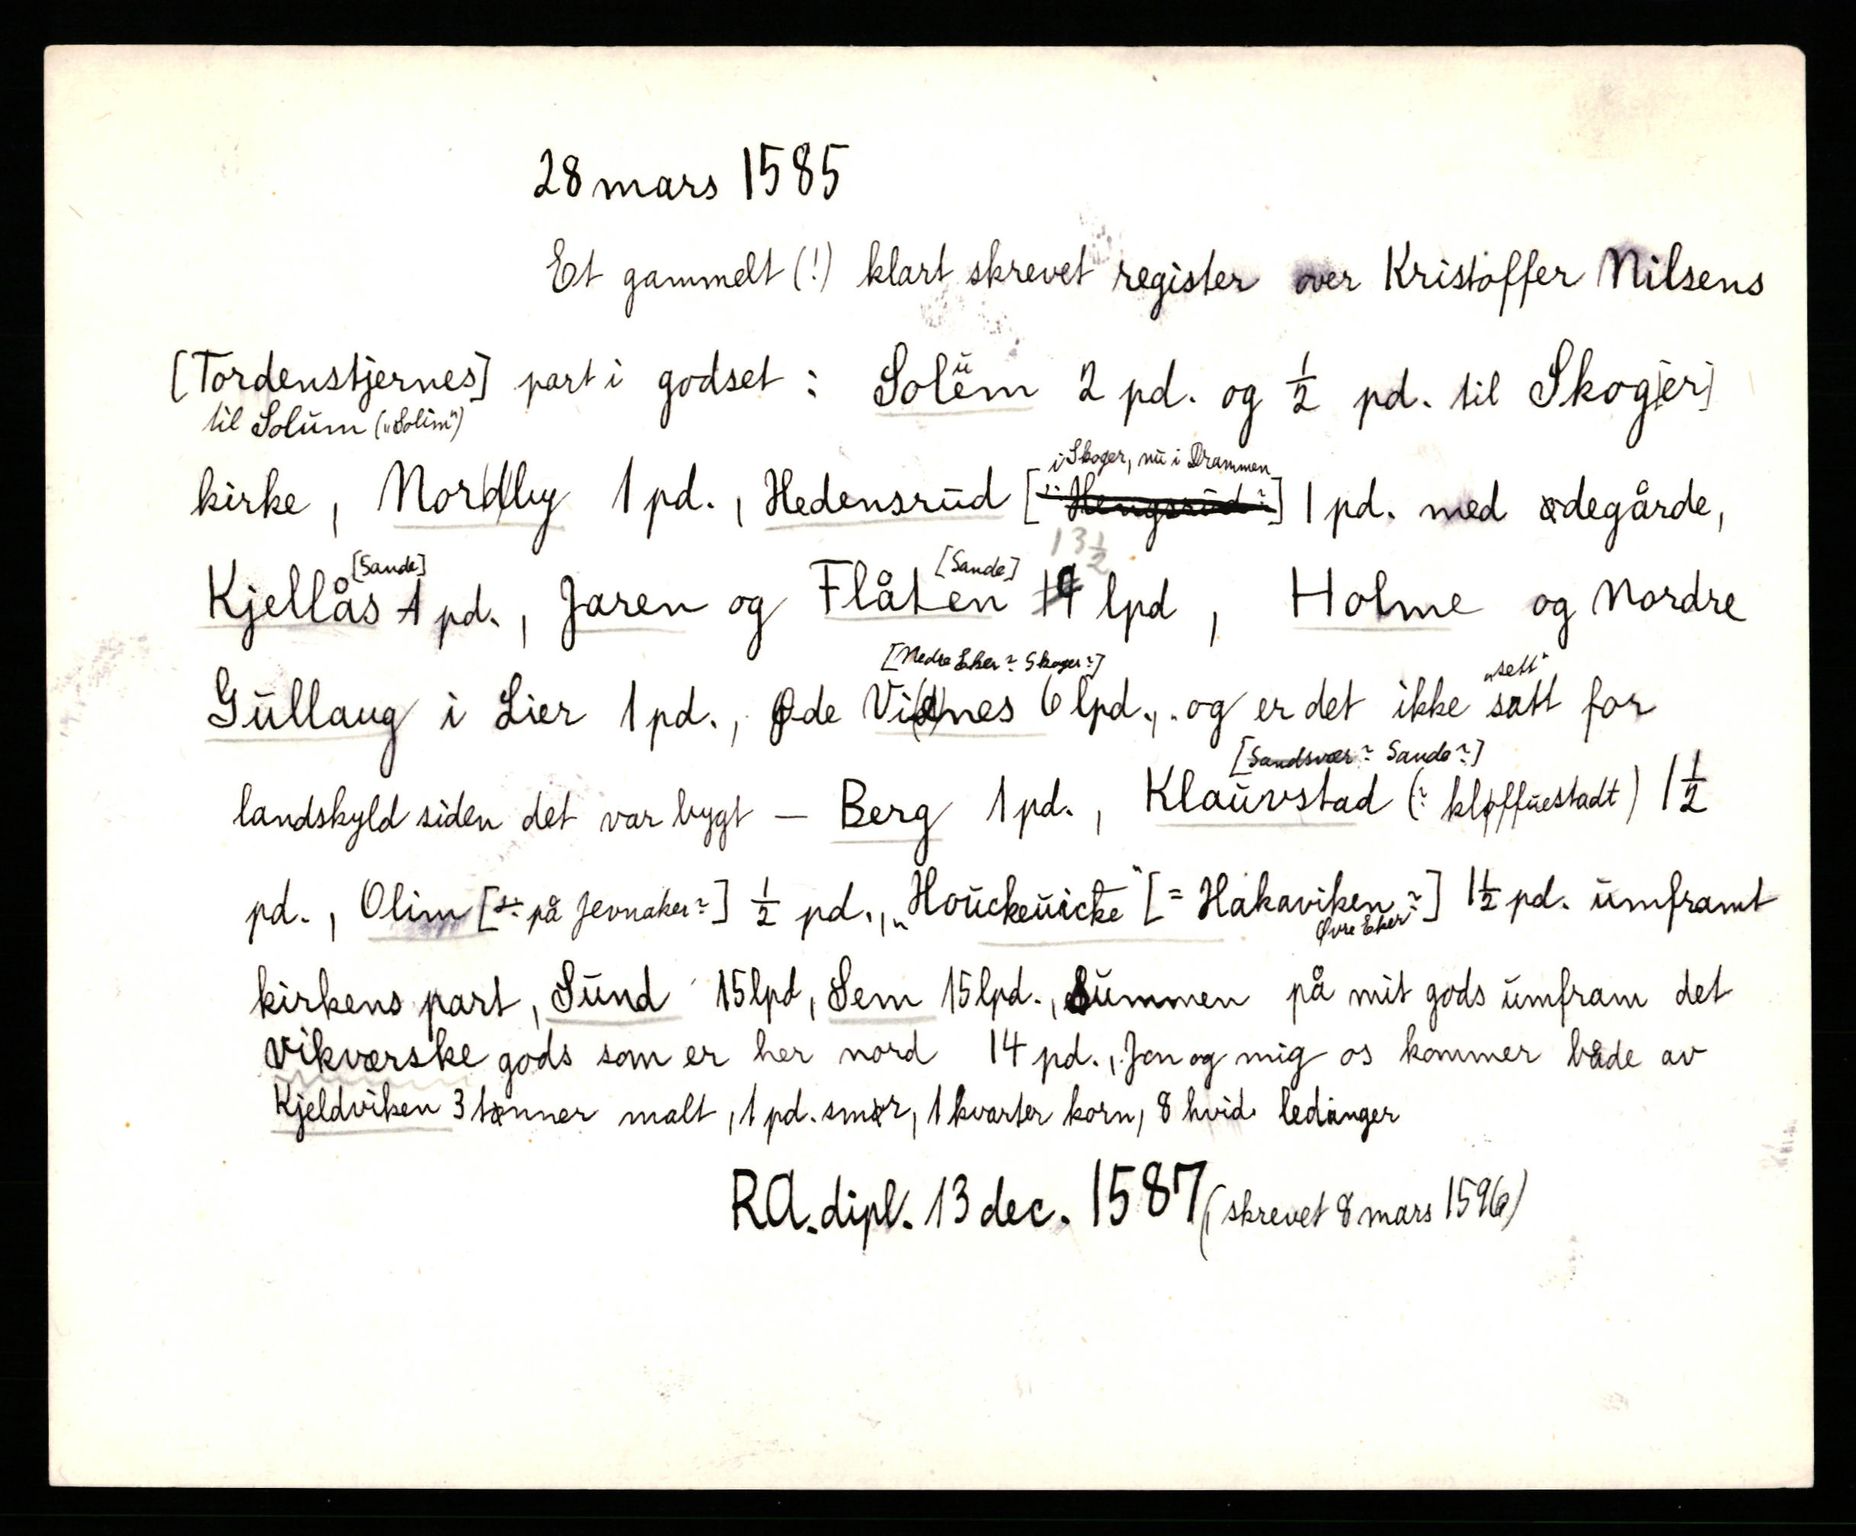 28 mars 1585
Et gammelt (!) klart skrevet register over Kristoffer Nilsens
[Tordenstjernes] part i godset : Solem 2 pd. og ½ pd. til Skog[er]
til Solum („Solim")
i Skoger, nu i Drammen
kirke, Nordby 1 pd., Hedensrud [ ] 1 pd. med ødegårde,
[Sande] [Sande] 13½
Kjellås 1 pd., Jaren og Flåten lpd, Holme og Nordre
[Nedre Eker? Skoger?] „sett"
Gullaug i Lier 1 pd., Øde Vi(d)nes 6 lpd., og er det ikke satt for
[Sandsvær? Sande?]
landskyld siden det var bygt – Berg 1 pd., Klauvstad (: kløffuestadt) 1½
pd., Olim [på Jevnaker?] ½ pd., „Houckeuicke" [= Hakaviken?] 1½ pd. umframt
Øvre Eker
kirkens part, Sund 15 lpd, Sem 15 lpd., Summen på mit gods umfram det
Vikværske gods som er her nord 14 pd., Jon og mig os kommer både av
Kjeldviken 3 tønner malt, 1 pd. smør, 1 kvarter korn, 8 hvid. ledinger
RA. dipl. 13 dec. 1587 (skrevet 8 mars 1596)